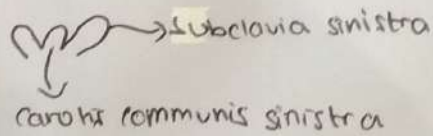 subclavia sinistra
carotis communis sinistra